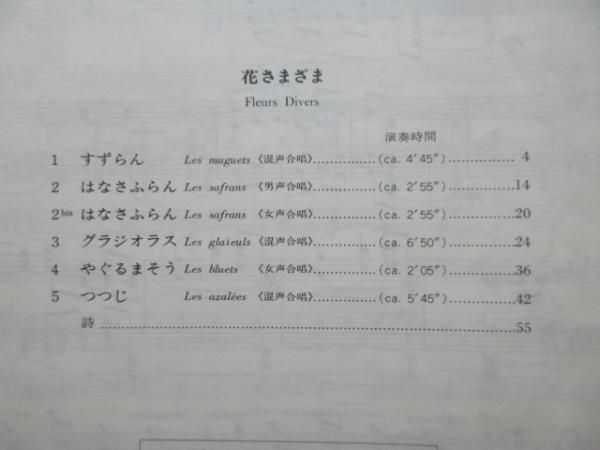 花さまざま
Fleurs Divers
演奏時間
1 すずらん Les muguets 《混声合唱》................(ca. 4′45″)................ 4
2 はなさふらん Les safrans 《男声合唱》................(ca. 2′55″)................14
2bis はなさふらん Les safrans 《女声合唱》................(ca. 2′55″)................20
3 グラジオラス Les glaïeuls 《混声合唱》................(ca. 6′50″)................24
4 やぐるまそう Les bluets 《女声合唱》................(ca. 2′05″)................36
5 つつじ Les azalées 《混声合唱》................(ca. 5′45″)................42
詩................................................................55